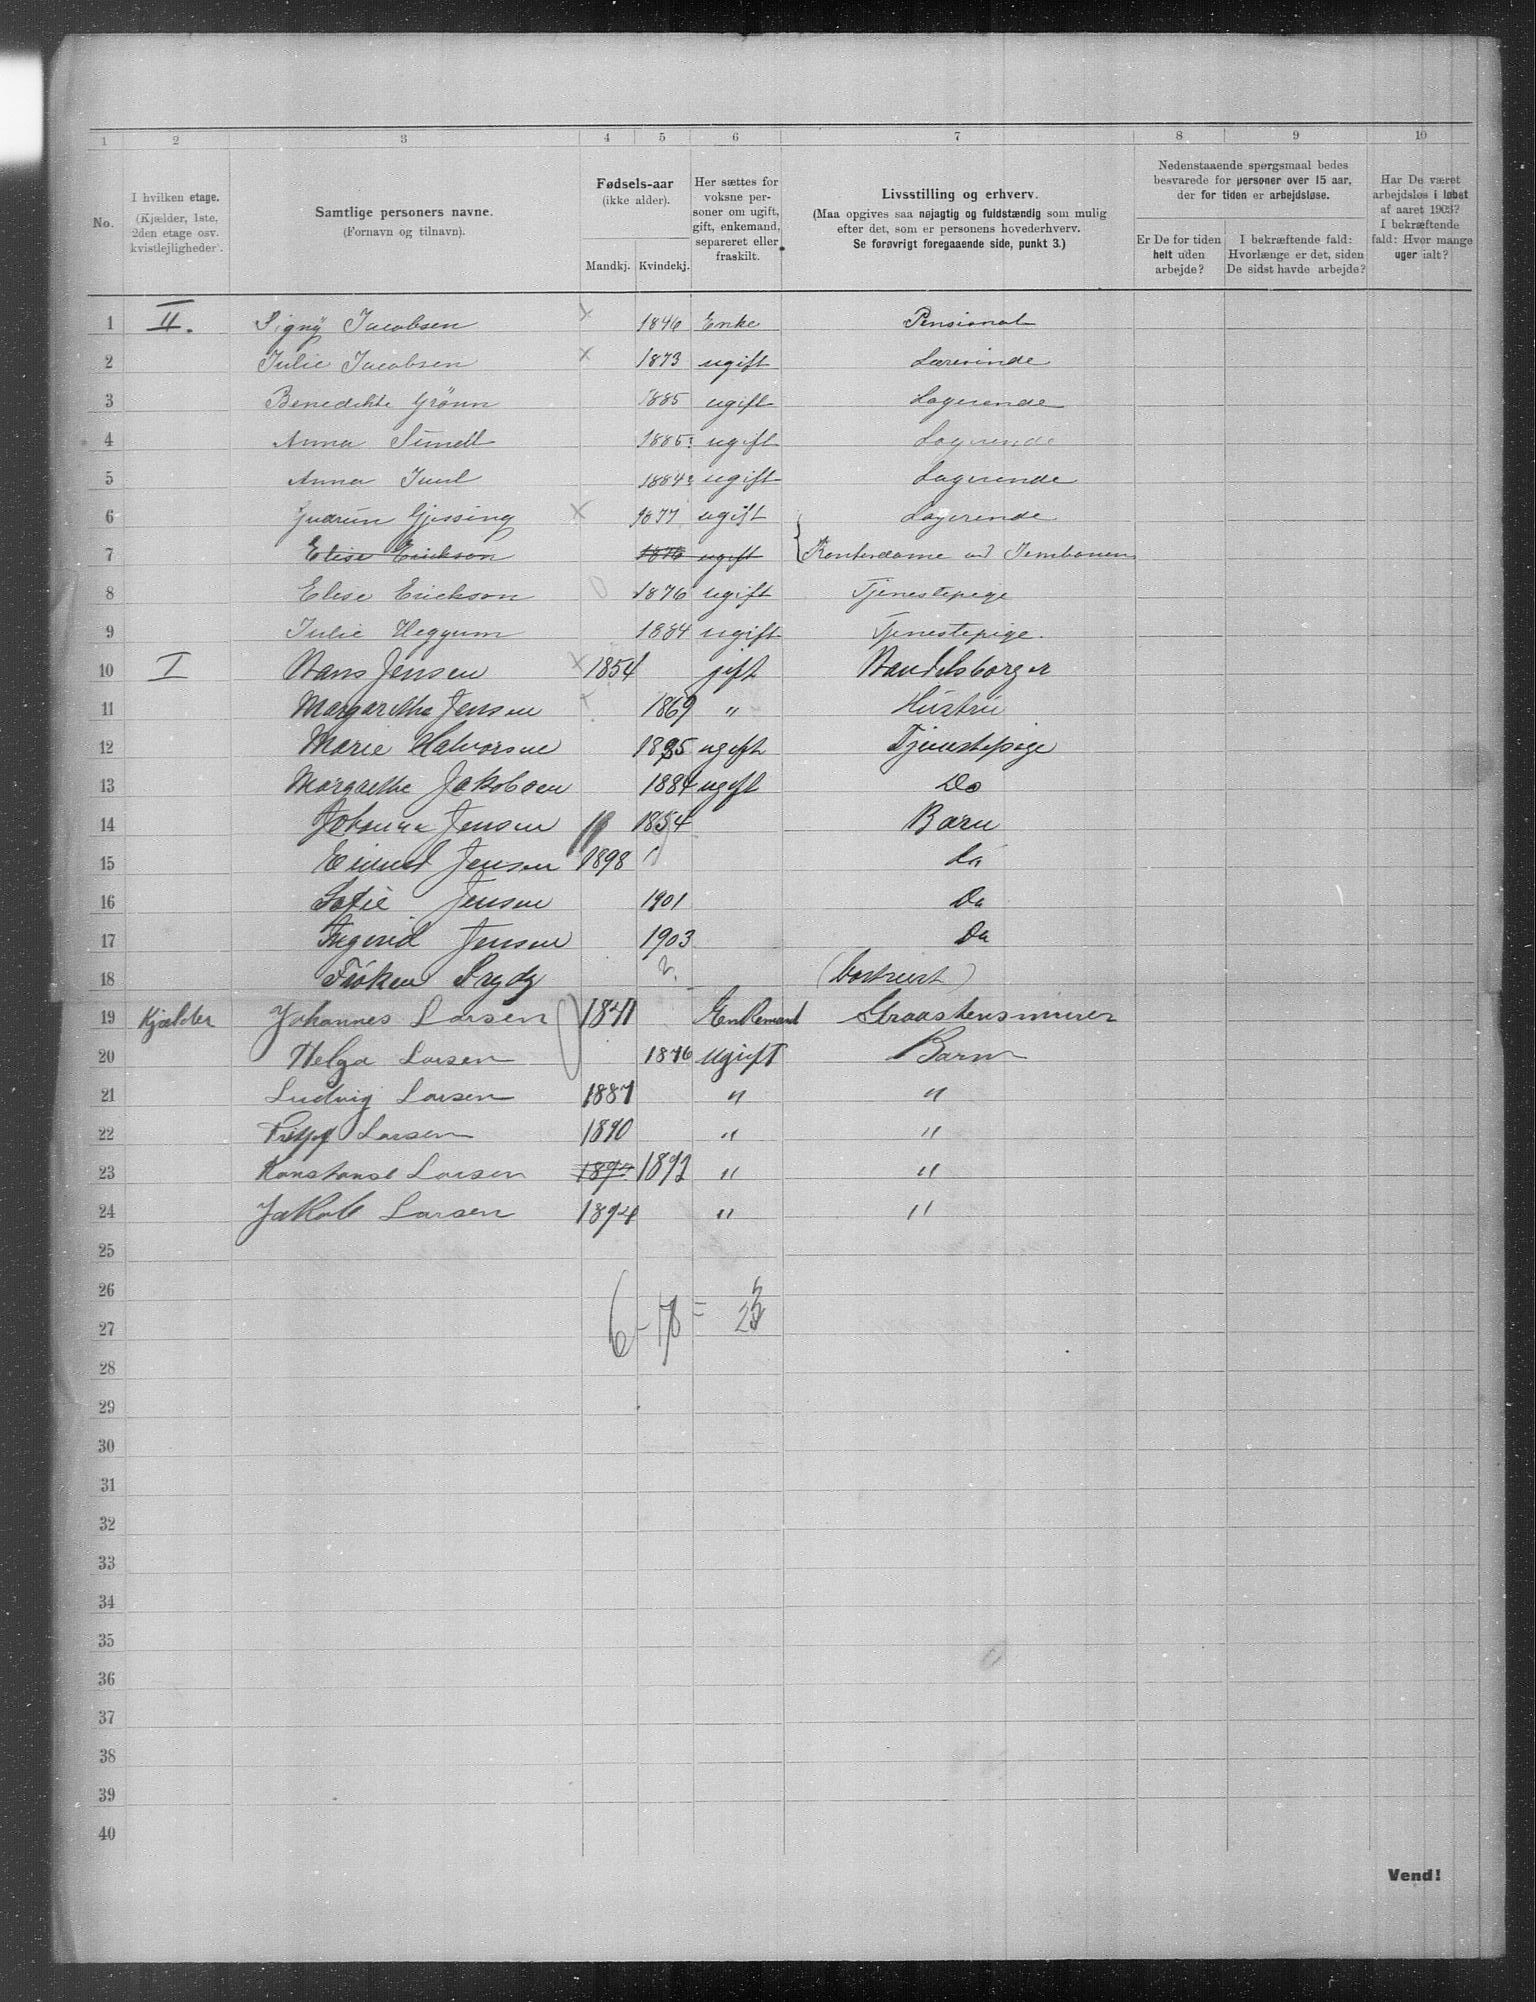 1 2 3 4 5 6 7 8 9 10
No.
I hvilken etage.
(Kjælder, 1ste, 2den etage osv. kvistlejligheder).
Samtlige personers navne.
(Fornavn og tilnavn).
Fødsels-aar
(ikke alder).
Mandkj. Kvindekj.
Her sættes for voksne personer om ugift, gift, enkemand, separeret eller fraskilt.
Livsstilling og erhverv.
(Maa opgives saa nøjagtig og fuldstændig som mulig efter det, som er personens hovederhverv.
Se forøvrigt foregaaende side, punkt 3.)
Nedenstaaende spørgsmaal bedes besvarede for personer over 15 aar, der for tiden er arbejdsløse.
Er De for tiden helt uden arbejde?
I bekræftende fald: Hvorlænge er det, siden De sidst havde arbejde?
Har De været arbejdsløs i løbet af aaret 1903? I bekræftende fald: Hvor mange uger ialt?
1 II. Signy Jacobsen x 1846 Enke Pensionat
2 Julie Jacobsen x 1873 ugift Lærerinde
3 Benedikte Grönn 1885 ugift Logerende
4 Anna 1885 ugift Logerende
5 Anna Juul 1884 ugift Logerende
6 Gudrun Gjessing x 1877 ugift Logerende
7 Elise Erickson 1876 ugift { Kontordame ved Jernbanen
8 Elise Erickson 0 1876 ugift Tjenestepige
9 Julie Heggum 1884 ugift Tjenestepige.
10 I Hans Jensen x 1854 gift Handelsborger
11 Margarethe Jensen x 1869 " Hustru
12 Marie Halvorsen 1885 ugift Tjenestepige
13 Margrethe Jakobsen 1884 ugift Do
14 Johanna Jensen Barn
15 Jensen 1898 Do
16 Sofie Jensen 1901 Do
17 Ingerid Jensen 1903 Do
18 Frøken (bortreist)
19 Kjælder Johannes Larsen 1841 Enkemand
20 Helga Larsen 1876 ugift Barn
21 Ludvig Larsen 1887 " "
22 Larsen 1890 " "
23 Konstanse Larsen 1892 1892 " "
24 Jakob Larsen 1894 " "
25
26
27 6 - 17 = 23
28
29
30
31
32
33
34
35
36
37
38
39
40
Vend!